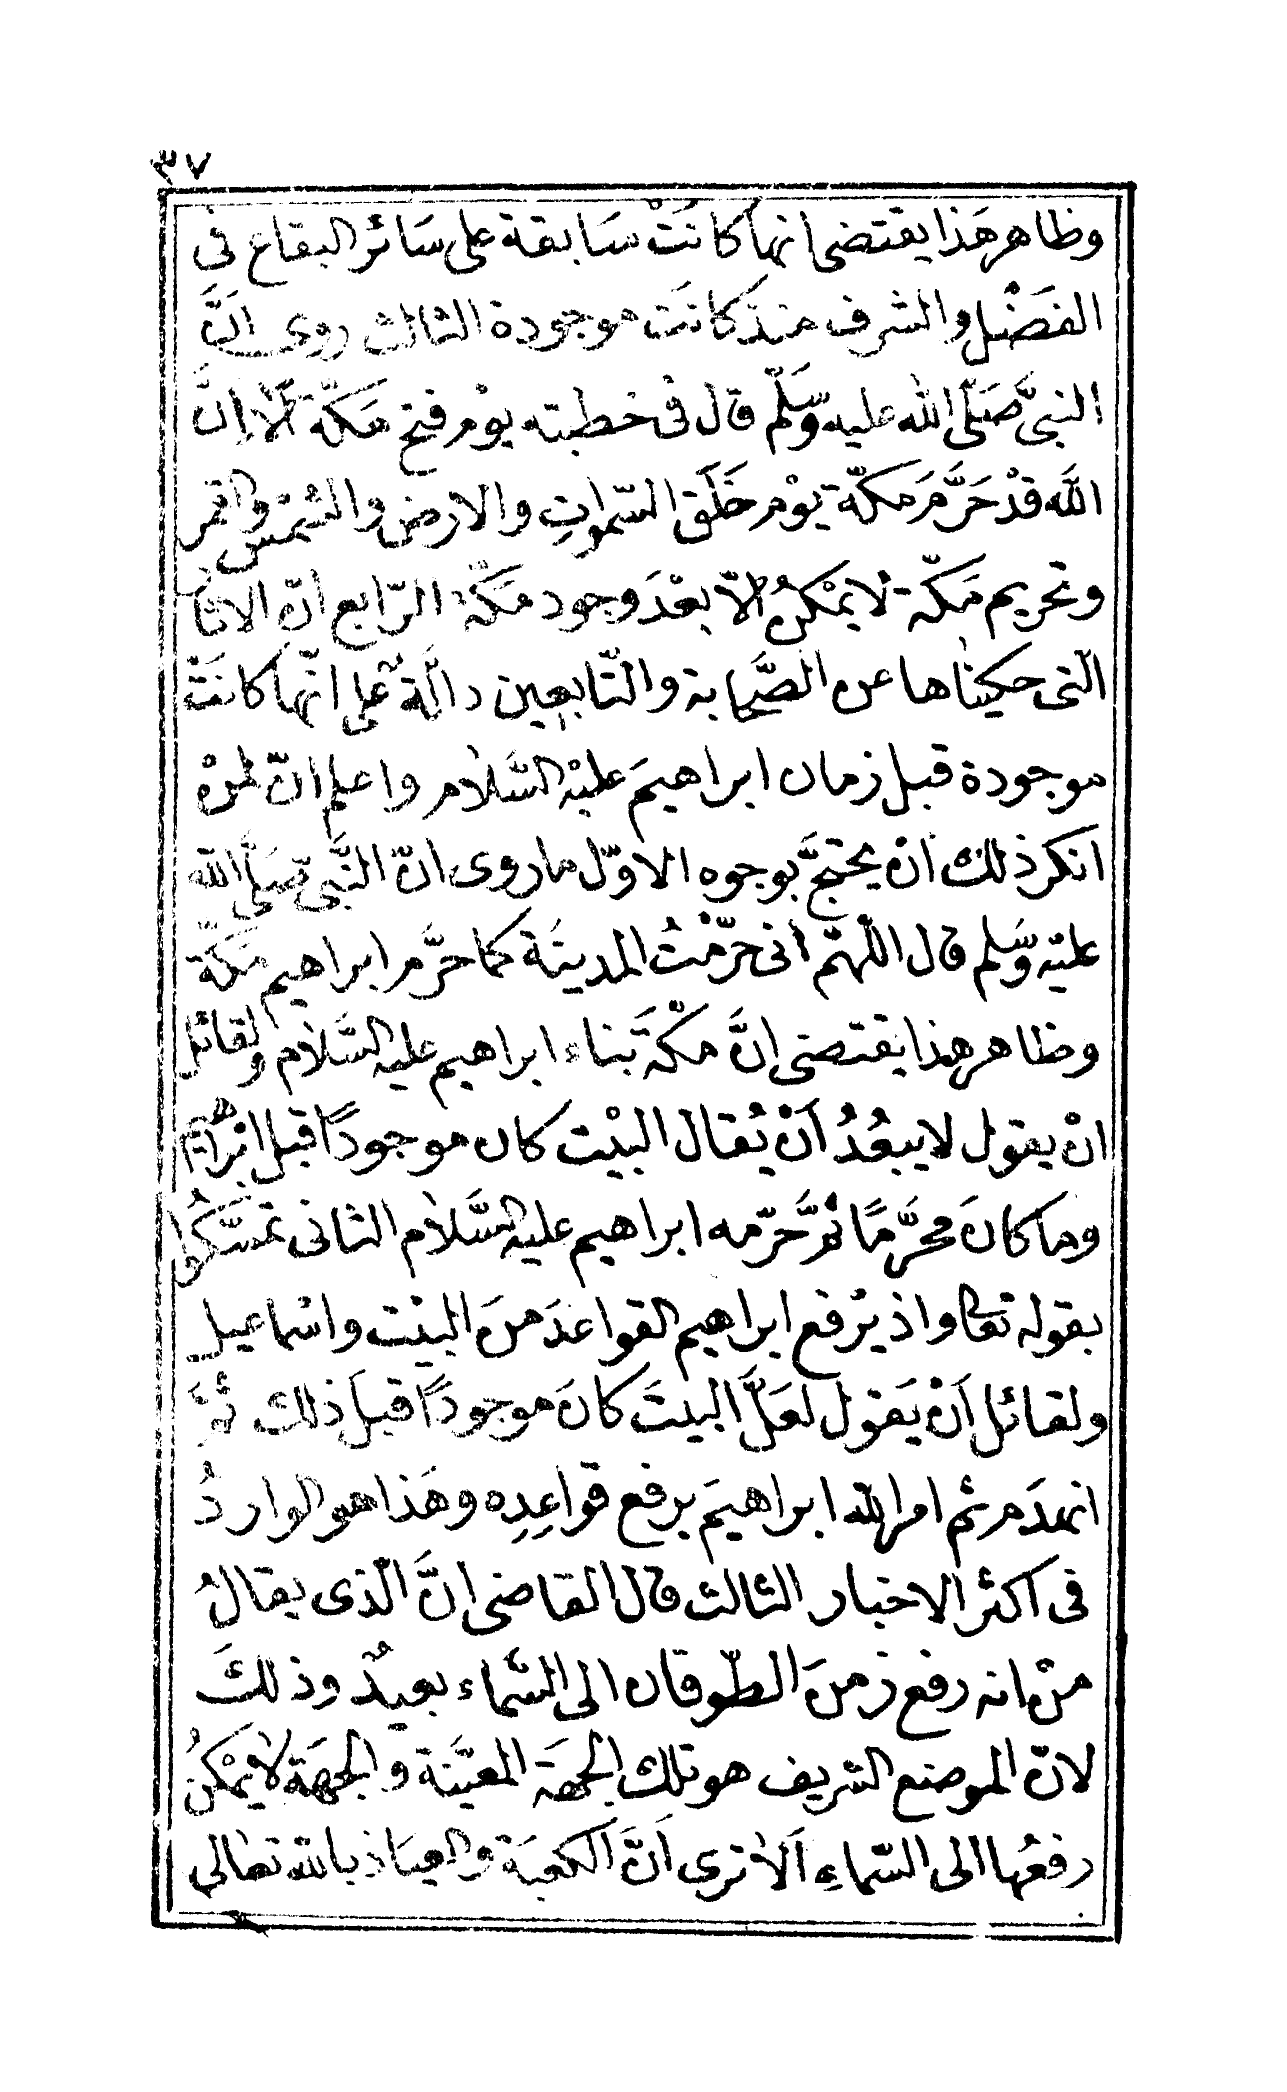 ٣٧
وظاهر هَذا يقتضى انها كانَتْ سَابقة على سَائر البقاع فى
الفَضْل والشرف منذ كانَت موجودة الثالث روى انَّ
النبىَّ صَلّى الله عليه وَسَلّم قال فى خطبته يوْم فتح مَكّة ألا اِنَّ
اللَّه قدْ حَرَّمَ مَكّة يوْم خَلَق السّمواتِ والارض والشمس والقمر
وتحريم مَكّة لا يمْكنُ الاّ بعْدَ وجود مَكّة الرّابع انّ الاثار
الّتى حكيْناها عن الصَّحابة والتّابعِين دالّة على انّها كانَتْ
موجودة قبل زمان ابراهيمَ عليْه السَّلام واعلم انّ لمنْ
انكر ذلك انْ يحتجَّ بوجوه الاوّل ما روى انّ النَّبى صَلّى الله
عليْه وَسَلم قال اللّهمّ انى حَرّمْتُ المدينَة كما حرَّم ابراهيم مَكّة
وظاهر هذا يقتضى اِنَّ مكْةَ بناء ابراهيم عليه السَّلام ولقائل
انْ يقول لا يبعُدُ اَنْ يُقال البيْت كان موجودًا قبل ابْراهيم
وما كانَ محرَّمًا ثمَّ حَرّمه ابراهيم عليه السَّلام الثانى تمسَّكُوا
بقوله تعا واذ يرْفع ابراهيم القواعدَ منَ البيْت واسْماعيل
ولقائل اَنْ يَقول لعَلَّ البيتَ كانَ موجودًا قبلَ ذلك ثمَّ
انهدَم ثم امر الله ابراهيمَ برفع قواعِدِه وهَذا هو الواردُ
فى اكثر الاخبار الثالث قال القاضى انَّ الّذى يقالُ
منْ انه رفع زمنَ الطّوفان الى السَّماء بعيدٌ وذلكَ
لانّ الموضع الشريف هو تلك الجهَة المعيَّنة والجهَة لا يمْكنُ
رفعُها الى السّماءِ اَلا ترى اَنَّ الكعبَة والعيَاذ بالله تعالى